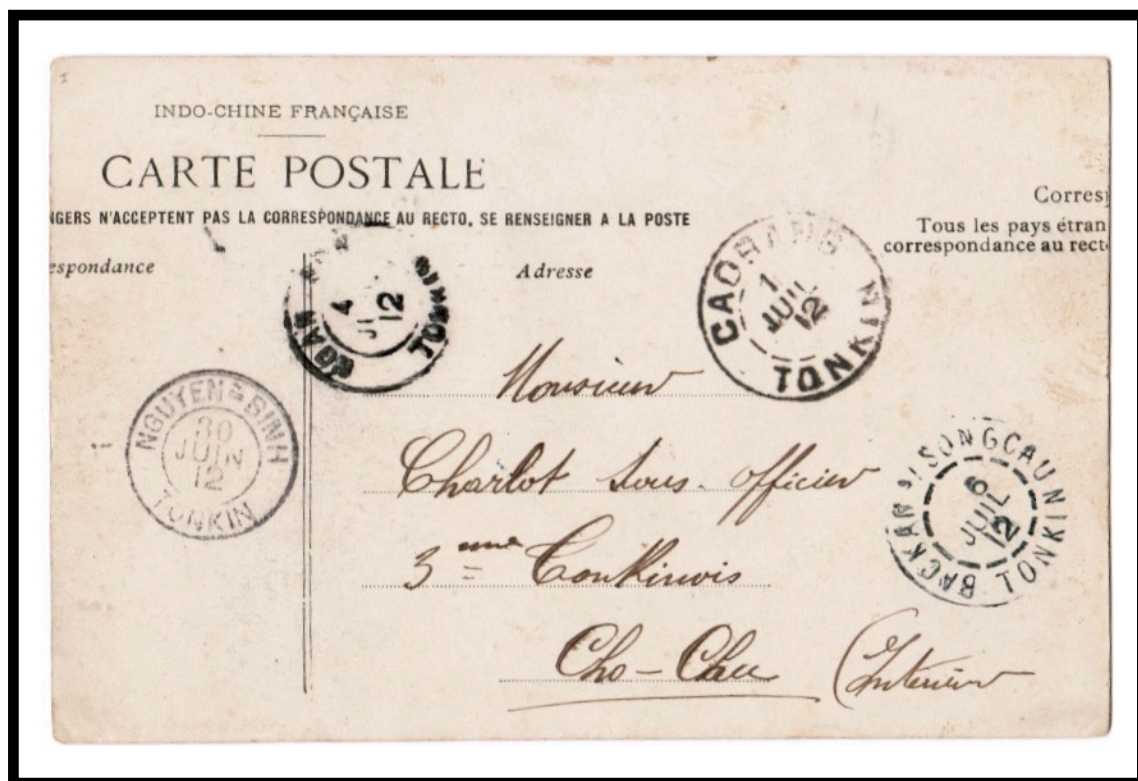 INDO-CHINE FRANÇAISE
CARTE POSTALE
NGERS N'ACCEPTENT PAS LA CORRESPONDANCE AU RECTO, SE RENSEIGNER A LA POSTE
Corresp
Tous les pays étran
correspondance au recto
espondance
Adresse
NGAN TONKIN
4
12
CAOBANG
1
JUIL
12
TONKIN
NGUYEN-BINH
30
JUIN
12
TONKIN
BACKAN A SONGCAU
6
JUIL
12
TONKIN
Monsieur
Charlot Sous-officier
3eme Tonkinois
Cho-Chu (Intérieur